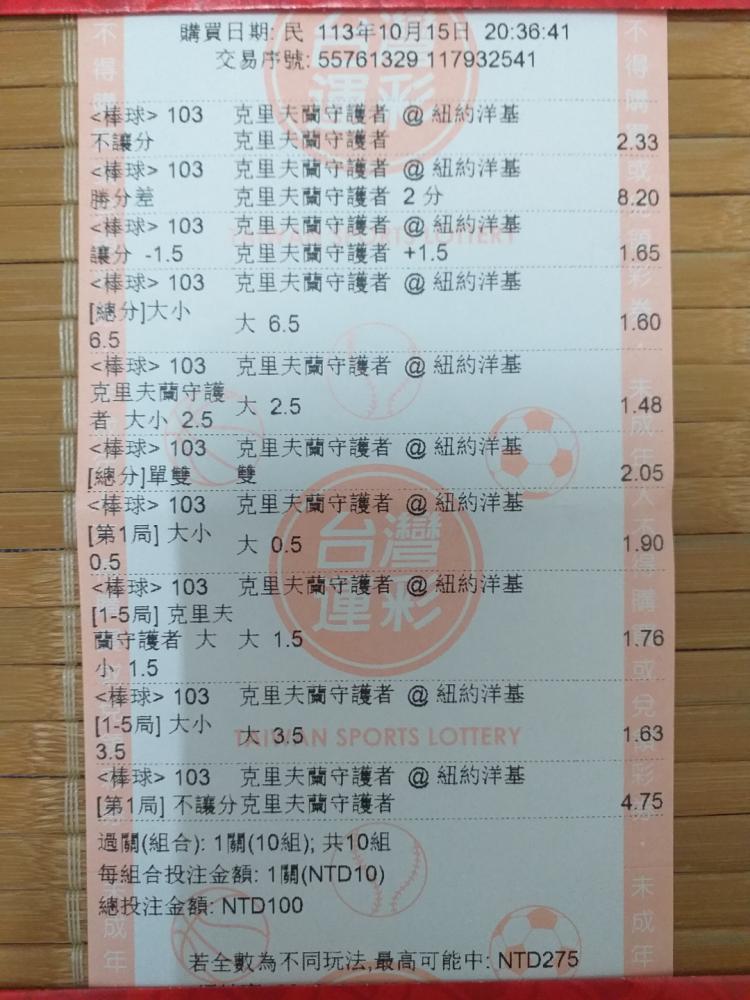 購買日期: 民 113年10月15日 20:36:41
交易序號: 55761329 117932541
<棒球> 103 克里夫蘭守護者 @ 紐約洋基
不讓分 克里夫蘭守護者 2.33
<棒球> 103 克里夫蘭守護者 @ 紐約洋基
勝分差 克里夫蘭守護者 2 分 8.20
<棒球> 103 克里夫蘭守護者 @ 紐約洋基
讓分 -1.5 克里夫蘭守護者 +1.5 1.65
<棒球> 103 克里夫蘭守護者 @ 紐約洋基
[總分]大小
大 6.5 1.60
6.5
<棒球> 103 克里夫蘭守護者 @ 紐約洋基
克里夫蘭守護
大 2.5 1.48
者 大小 2.5
<棒球> 103 克里夫蘭守護者 @ 紐約洋基
[總分]單雙 雙 2.05
<棒球> 103 克里夫蘭守護者 @ 紐約洋基
[第1局] 大小
大 0.5 1.90
0.5
<棒球> 103 克里夫蘭守護者 @ 紐約洋基
[1-5局] 克里夫
蘭守護者 大 大 1.5 1.76
小 1.5
<棒球> 103 克里夫蘭守護者 @ 紐約洋基
[1-5局] 大小
大 3.5 1.63
3.5
<棒球> 103 克里夫蘭守護者 @ 紐約洋基
[第1局] 不讓分克里夫蘭守護者 4.75
過關(組合): 1關(10組); 共10組
每組合投注金額: 1關(NTD10)
總投注金額: NTD100
若全數為不同玩法,最高可能中: NTD275
台灣
運彩
TAIWAN SPORTS LOTTERY
台灣
運彩
TAIWAN SPORTS LOTTERY